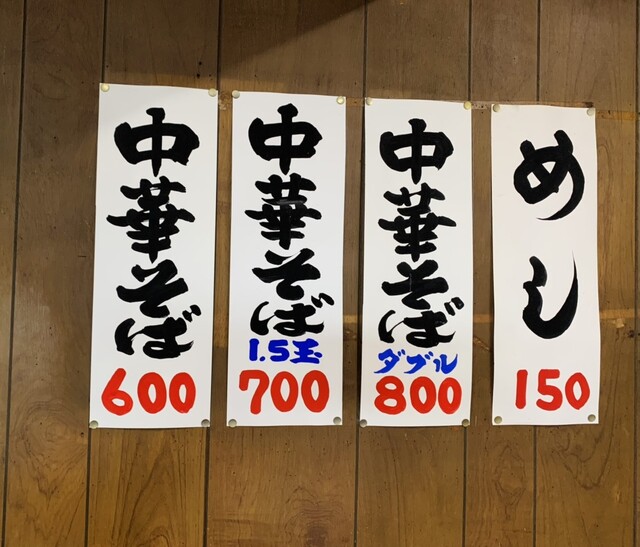 中華そば
600
中華そば
1.5玉
700
中華そば
ダブル
800
めし
150